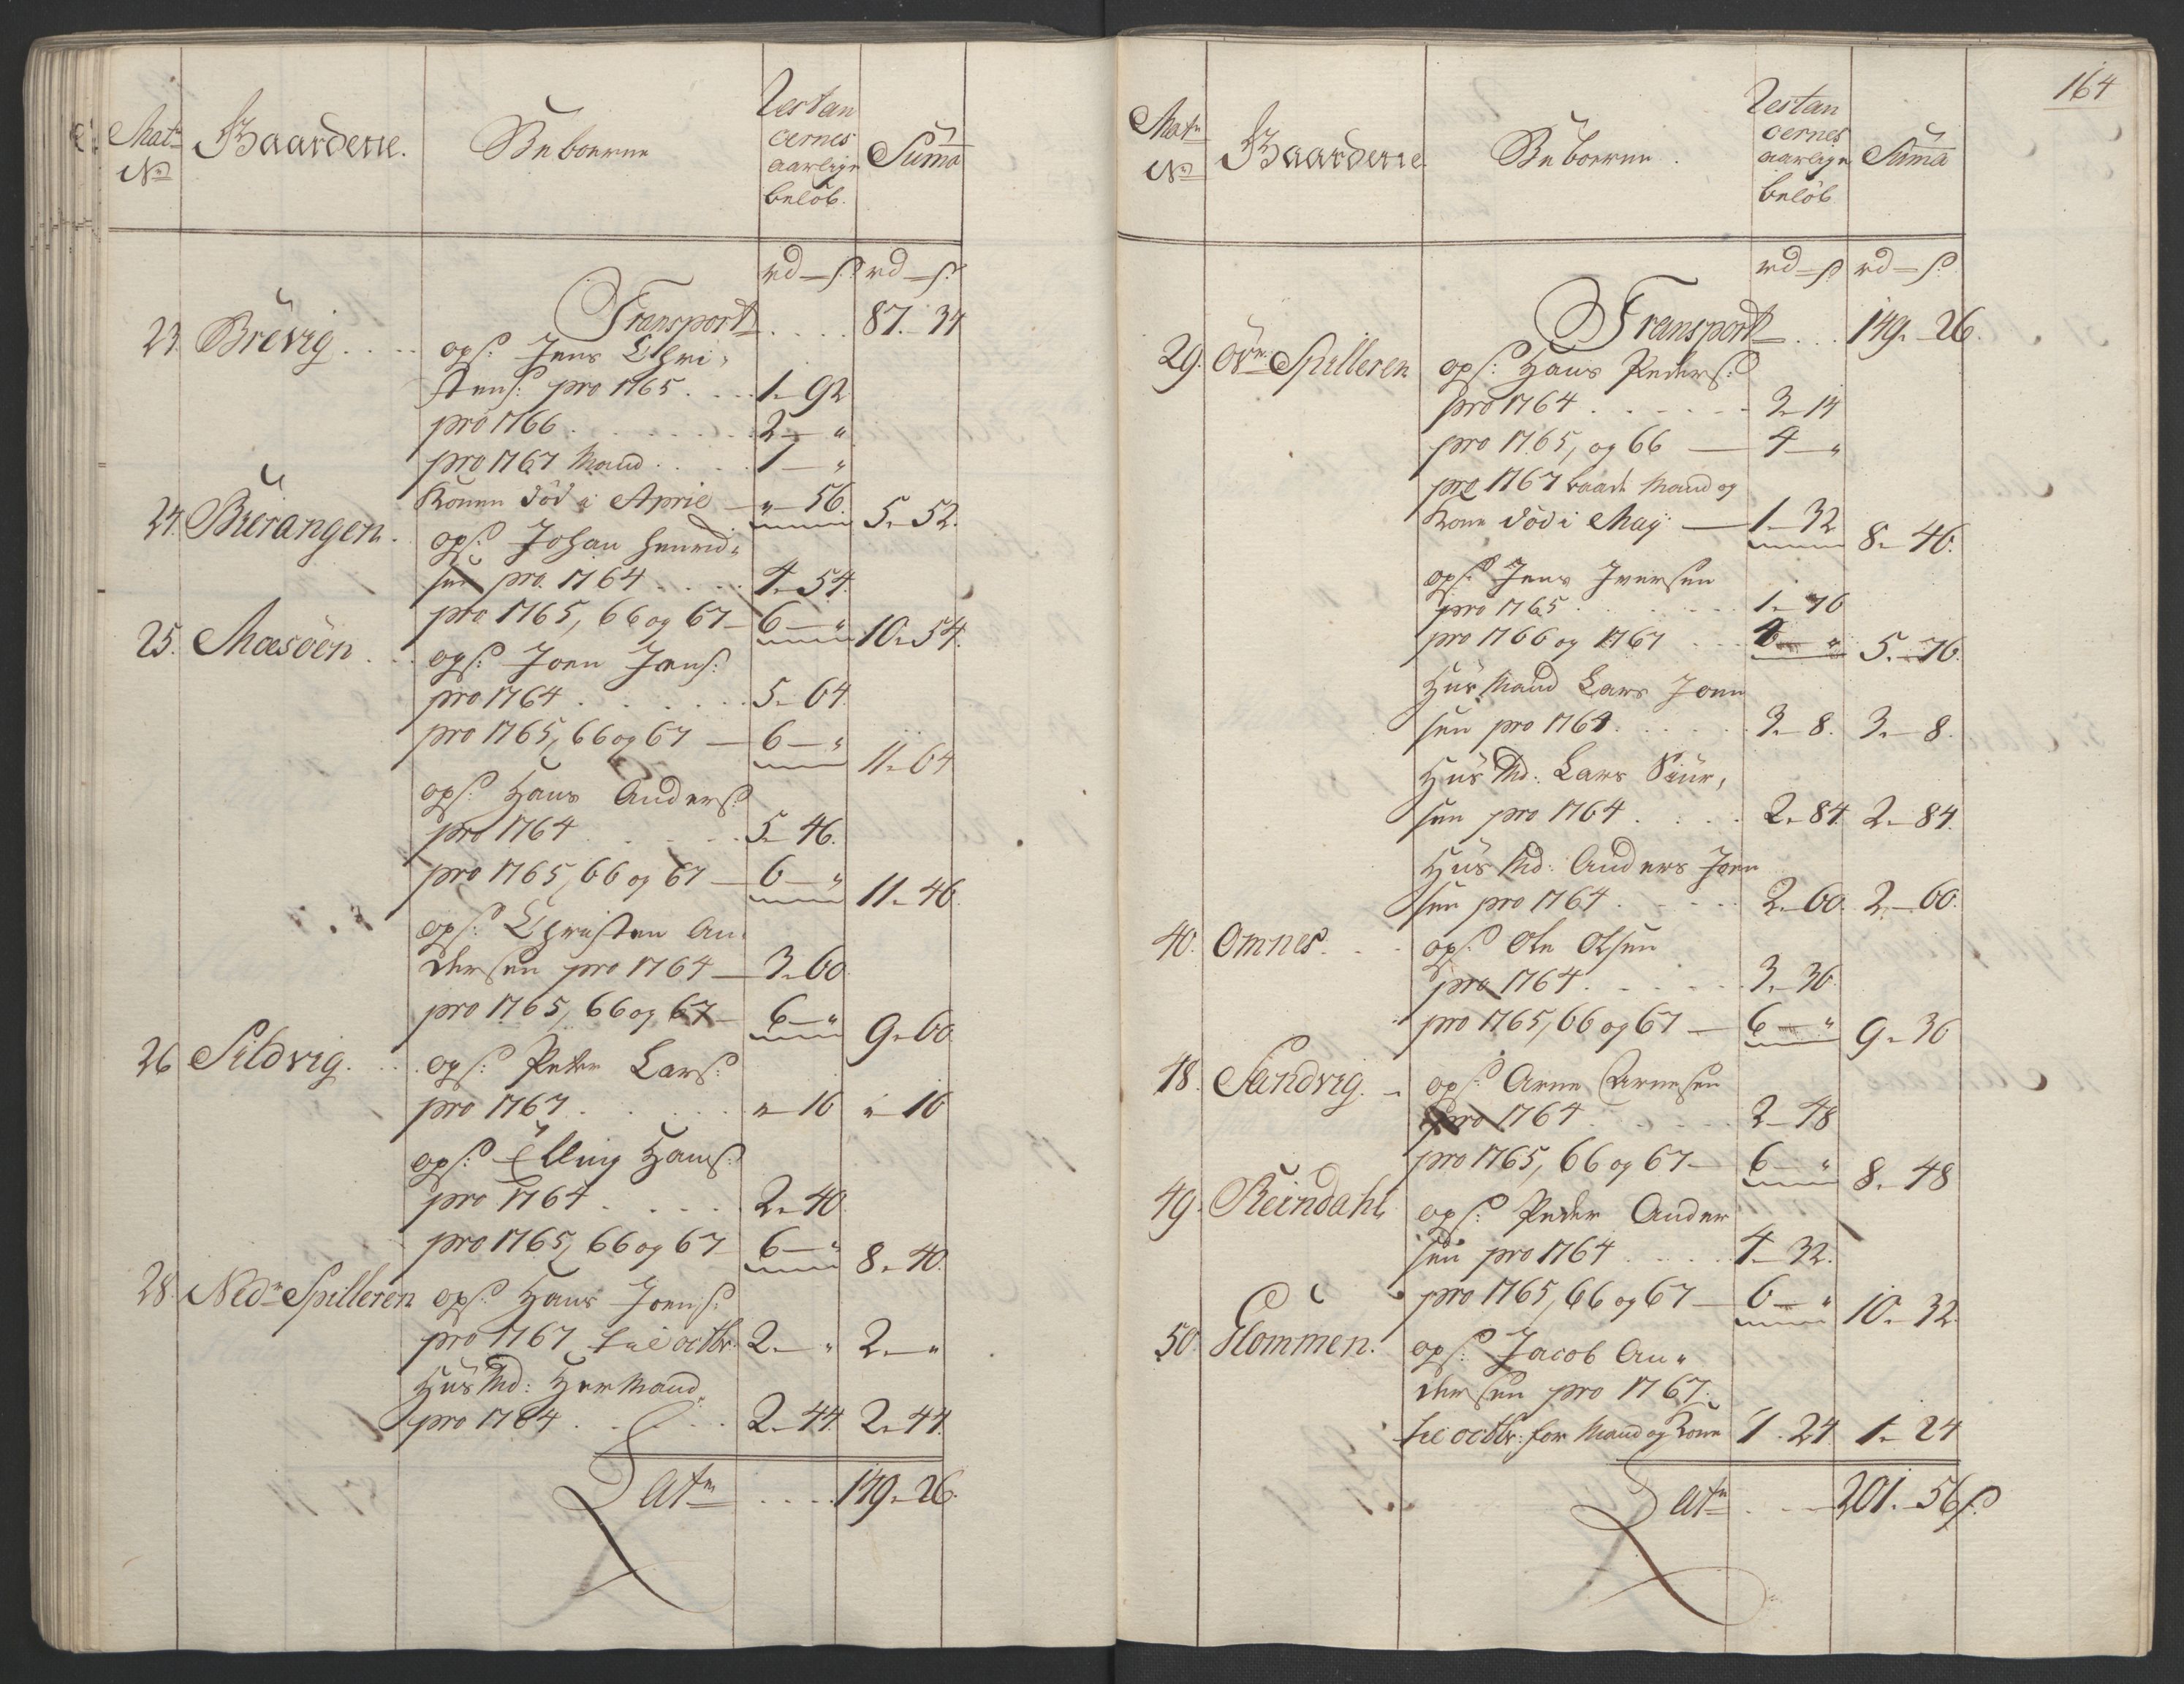 Mat:
No
Gaardene.
Beboerne
Restan
cernes
aarlige
beløb.
Suma
rd — s: rd — s:
Transport . . . . 87. 34
23. Brevig . . . . ops: Jens Chri-
stens: pro 1765 . . . 1. 92
pro 1766 . . . . . . . 2 — "
pro 1767 Mand . . . . 1 — "
Konen død i April — " — 56. 5. 52.
24. Bierangen . ops: Johan Henrich-
sen pro 1764 . . . . 4. 54.
pro 1765, 66 og 67 — 6 — " 10. 54.
25. Mæsøen . . . ops: Joen Jens:
pro 1764 . . . . . . 5. 64.
pro 1765, 66 og 67 — 6 — " 11. 64
ops: Hans Anders:
pro 1764 . . . . . 5. 46.
pro 1765, 66 og 67 — 6 — " 11. 46.
ops: Christen An-
dersen pro 1764 — 3. 60.
pro 1765, 66 og 67 — 6 — " 9. 60.
26 Sildvig . . . ops: Peder Lars:
pro 1767 . . . . . " 16 " 16
ops: Elling Hans:
pro 1764 . . . . . 2. 40.
pro 1765, 66 og 67 6 — " 8. 40.
28. Nedr Spilleren ops: Hans Joens:
pro 1767 til octbr 2. — " 2. — "
Huusmd: Hermand
pro 1764 . . . . . 2. 44. 2. 44.
Latr . . . . 149. 26.
164
Matr
No
Gaardene
Beboerne .
Restan
cernes
aarlige
beløb
Suma
rd — s: rd — s:
Transport . . . 149. 26.
29. Øvr Spilleren ops: Hans Peders:
pro 1764 . . . . . . 3. 14
pro 1765, og 66 — 4 — "
pro 1767 baade Mand og
Kone død i Maj — 1. 32 8. 46.
ops: Jens Iversen
pro 1765 . . . . . . 1. 76
pro 1766 og 1767 . . . 4 — " 5. 76.
Huus Mand Lars Joen
sen pro 1764 . . . . . 3. 8. 3. 8.
Huus Md: Lars Siur-
sen pro 1764 . . . . 2. 84. 2. 84.
Huus Md: Anders Joen
sen pro 1764 . . . . . 2. 60. 2. 60.
40. Omnes . . . ops: Ole Olsen
pro 1764 . . . . . . 3. 36.
pro 1765, 66 og 67 — 6 — " 9. 36
48. Sandvig . . ops: Arne Arnesen
pro 1764 . . . . . . 2. 48
pro 1765, 66 og 67 — 6 — " 8. 48
49. Reindahl ops: Peder Ander
sen pro 1764 . . . . . 4. 32.
pro 1765, 66 og 67 — 6 — " 10. 32.
50. Glommen. ops: Jacob An-
dersen pro 1767.
til octbr: for Mand og Kone 1. 24. 1. 24
Latr . . . 201. 56 s: